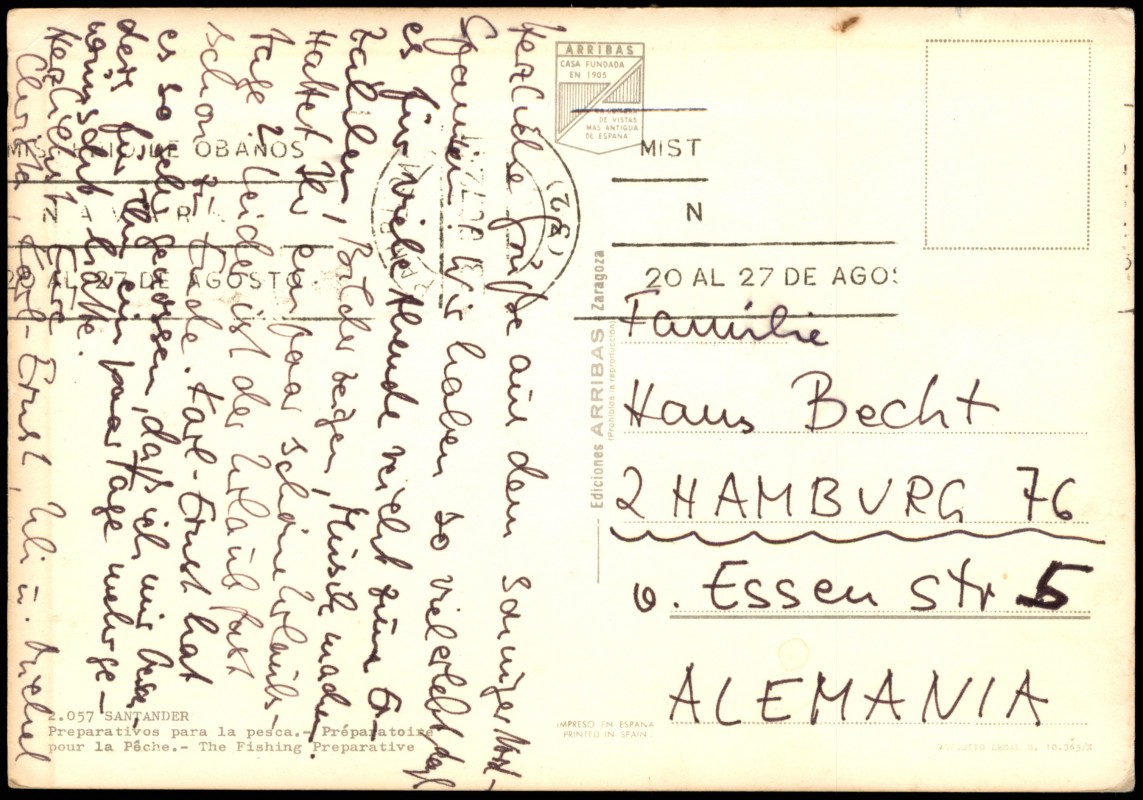 Herzliche Grüße aus dem sonnigen Nord-
Spanien. Wir haben so viel erlebt, daß
es für viele Abende reicht zum Er-
zählen! Bilder zeigen, Musik machen.
Hattet Ihr ein paar schöne Urlaubs-
tage? Leider ist der Urlaub fast
schon zu Ende. Karl-Ernst hat
es so sehr genossen, daß ich mir besser
für ihn ein paar Tage mehr ge-
wünscht hätte.
Herzlichst Eure
Christa, Karl-Ernst, Uli u. Michel
ARRIBAS
CASA FUNDADA
EN 1905
DE VISTAS
MAS ANTIGUA
DE ESPAÑA
MIST
N
20 AL 27 DE AGOS
OBANOS
20 AL 27 DE AGOSTO
Ediciones ARRIBAS Zaragoza
(Prohibida la reproducción)
Familie
Hans Becht
2 HAMBURG 76
v. Essen Str 5
ALEMANIA
2.057 SANTANDER
Preparativos para la pesca.- Préparatoire
pour la Pêche.- The Fishing Preparative
IMPRESO EN ESPAÑA
PRINTED IN SPAIN
DEPOSITO LEGAL B. 10.363/X